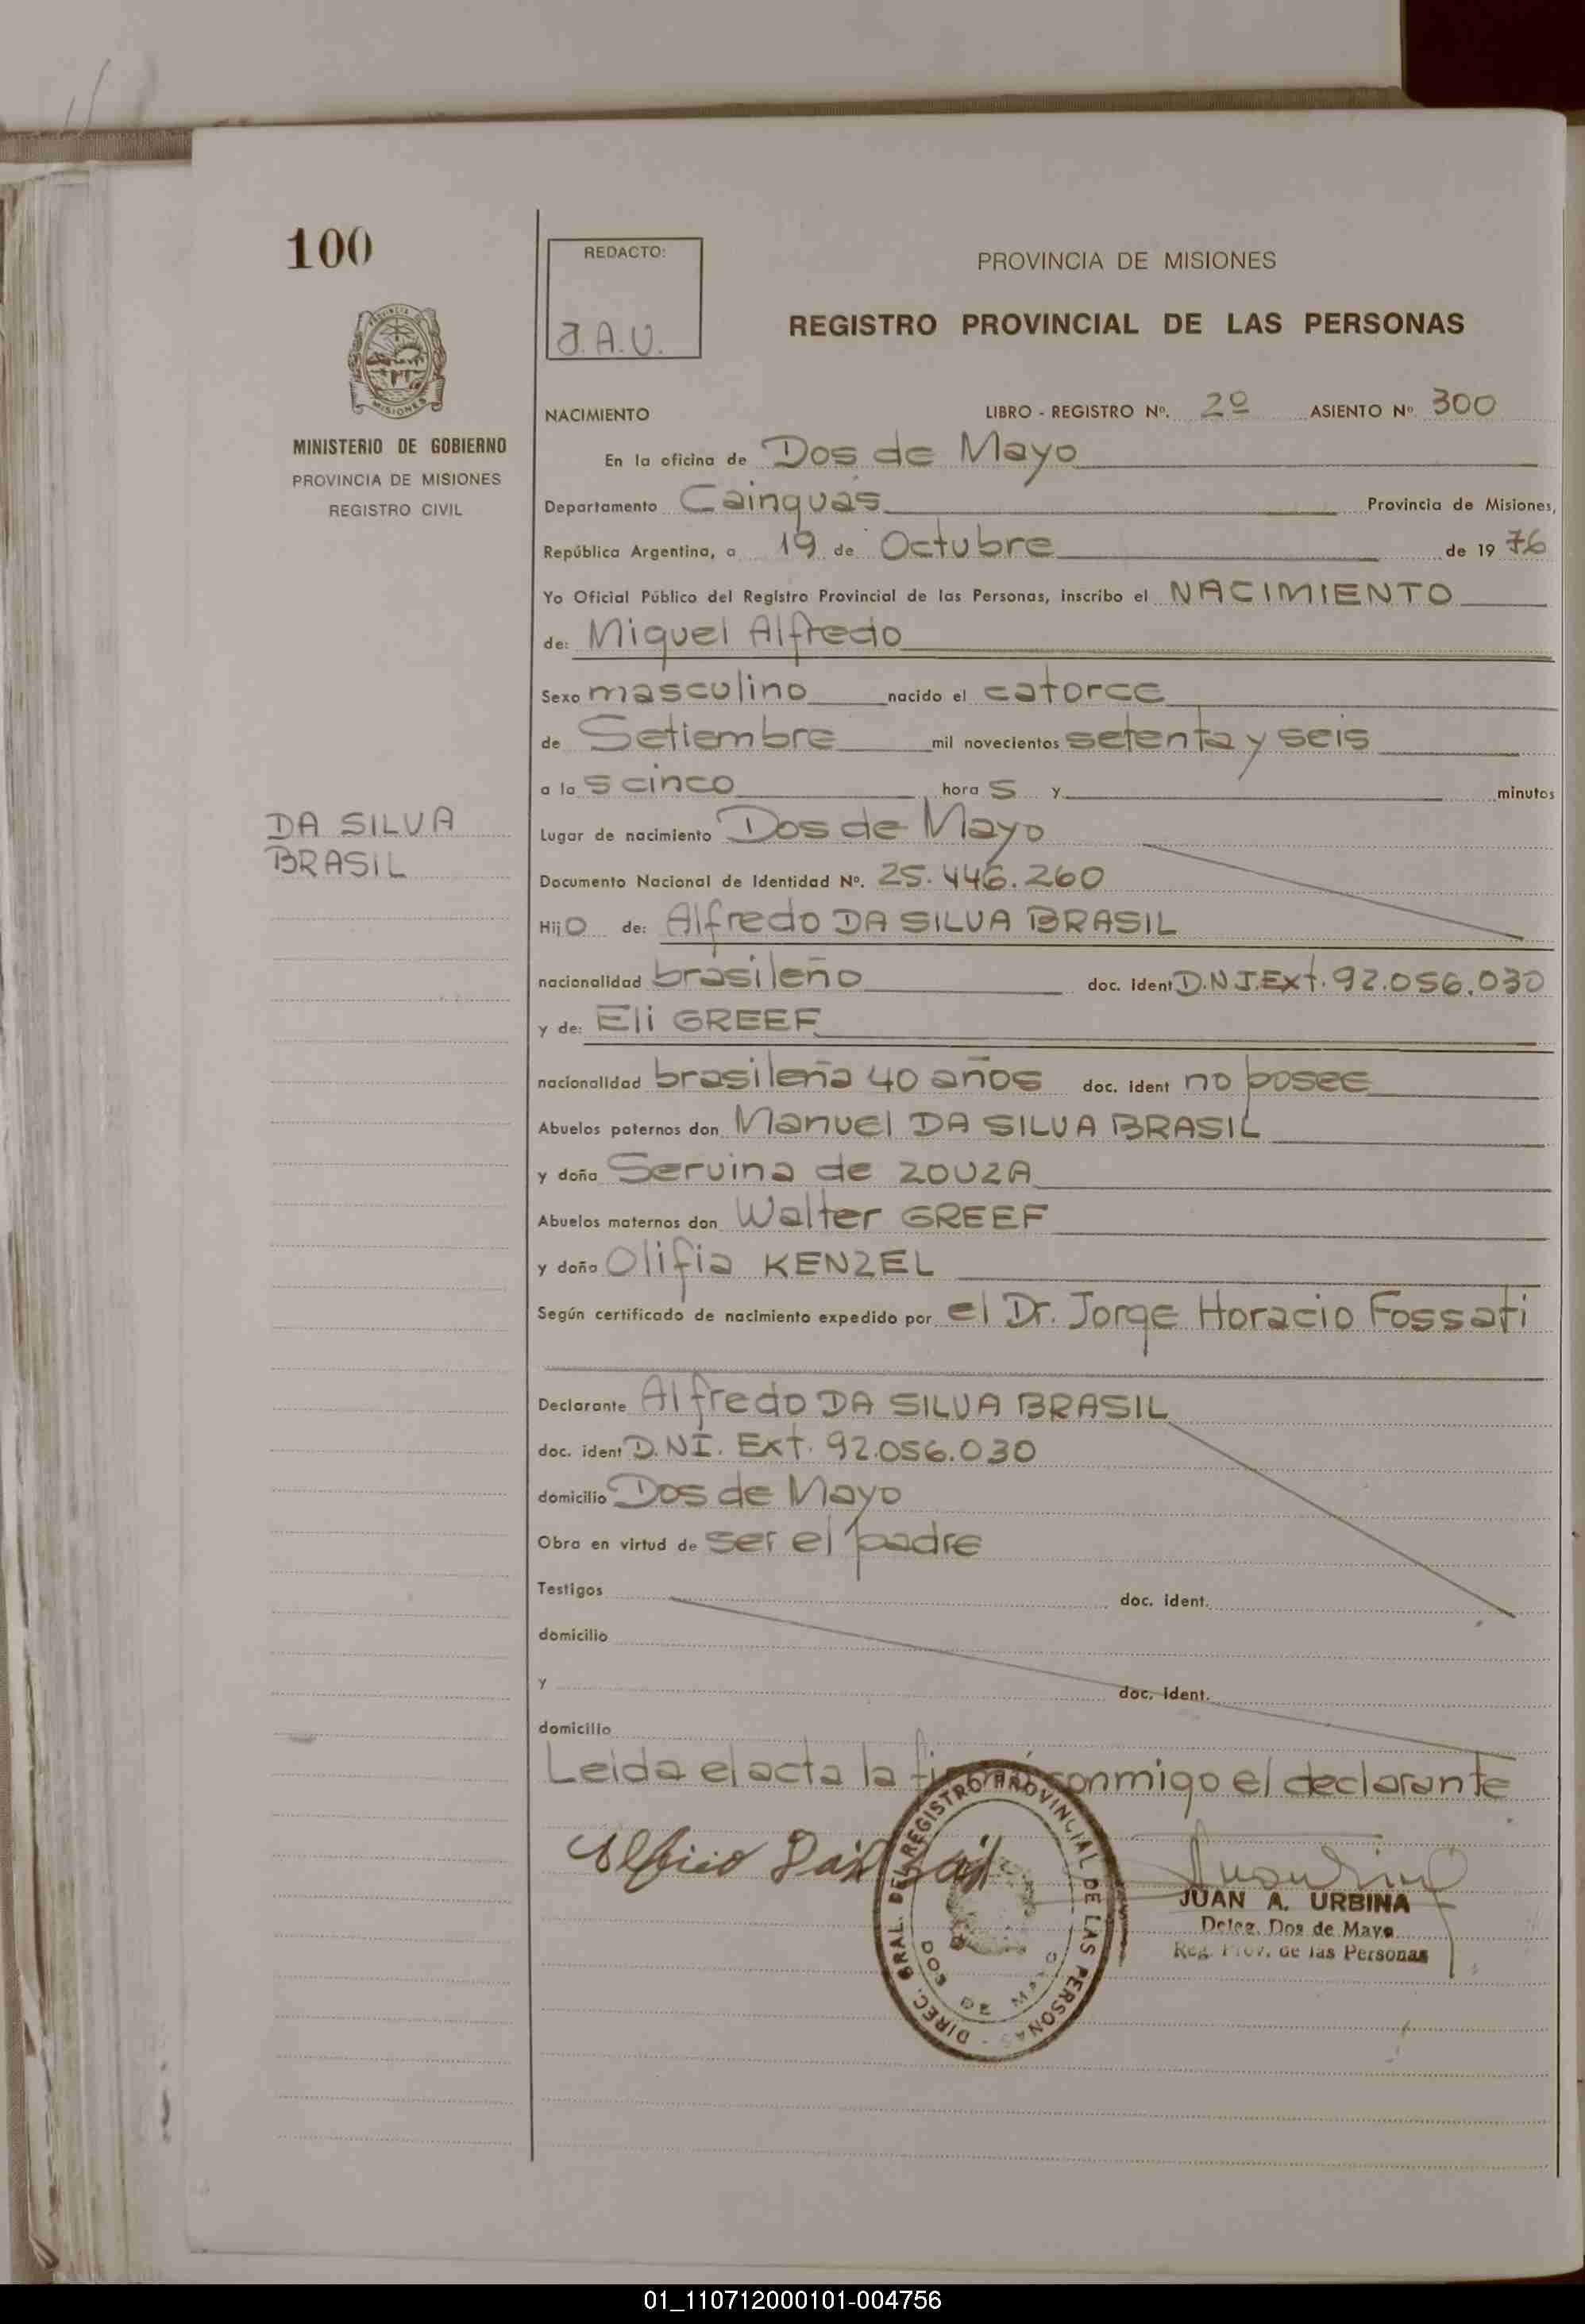 100
REDACTO:
J.A.U.
PROVINCIA DE MISIONES
REGISTRO PROVINCIAL DE LAS PERSONAS
MINISTERIO DE GOBIERNO
PROVINCIA DE MISIONES
REGISTRO CIVIL
NACIMIENTO LIBRO - REGISTRO Nº. 2º ASIENTO Nº 300
En la oficina de Dos de Mayo
Departamento Cainguás Provincia de Misiones,
República Argentina, a 19 de Octubre de 1976
Yo Oficial Público del Registro Provincial de las Personas, inscribo el NACIMIENTO
de: Miguel Alfredo
Sexo masculino nacido el catorce
de Setiembre mil novecientos setenta y seis
a la s cinco hora s y minutos
DA SILVA
BRASIL
Lugar de nacimiento Dos de Mayo
Documento Nacional de Identidad Nº. 25.446.260
Hijo de: Alfredo DA SILVA BRASIL
nacionalidad brasileño doc. ident D.N.I.Ext. 92.056.030
y de: Eli GREEF
nacionalidad brasileña 40 años doc. ident no posee
Abuelos paternos don Manuel DA SILVA BRASIL
y doña Servina de ZOUZA
Abuelos maternos don Walter GREEF
y doña Olifia KENZEL
Según certificado de nacimiento expedido por el Dr. Jorge Horacio Fossati
Declarante Alfredo DA SILVA BRASIL
doc. ident D.NI. Ext. 92.056.030
domicilio Dos de Mayo
Obra en virtud de ser el padre
Testigos doc. ident.
domicilio
y doc. ident.
domicilio
Leida el acta la firmó conmigo el declarante
DIREC. GRAL. DEL REGISTRO PROVINCIAL DE LAS PERSONAS -
DOS DE MAYO
JUAN A. URBINA
Deleg. Dos de Mayo
Reg. Prov. de las Personas
01_110712000101-004756